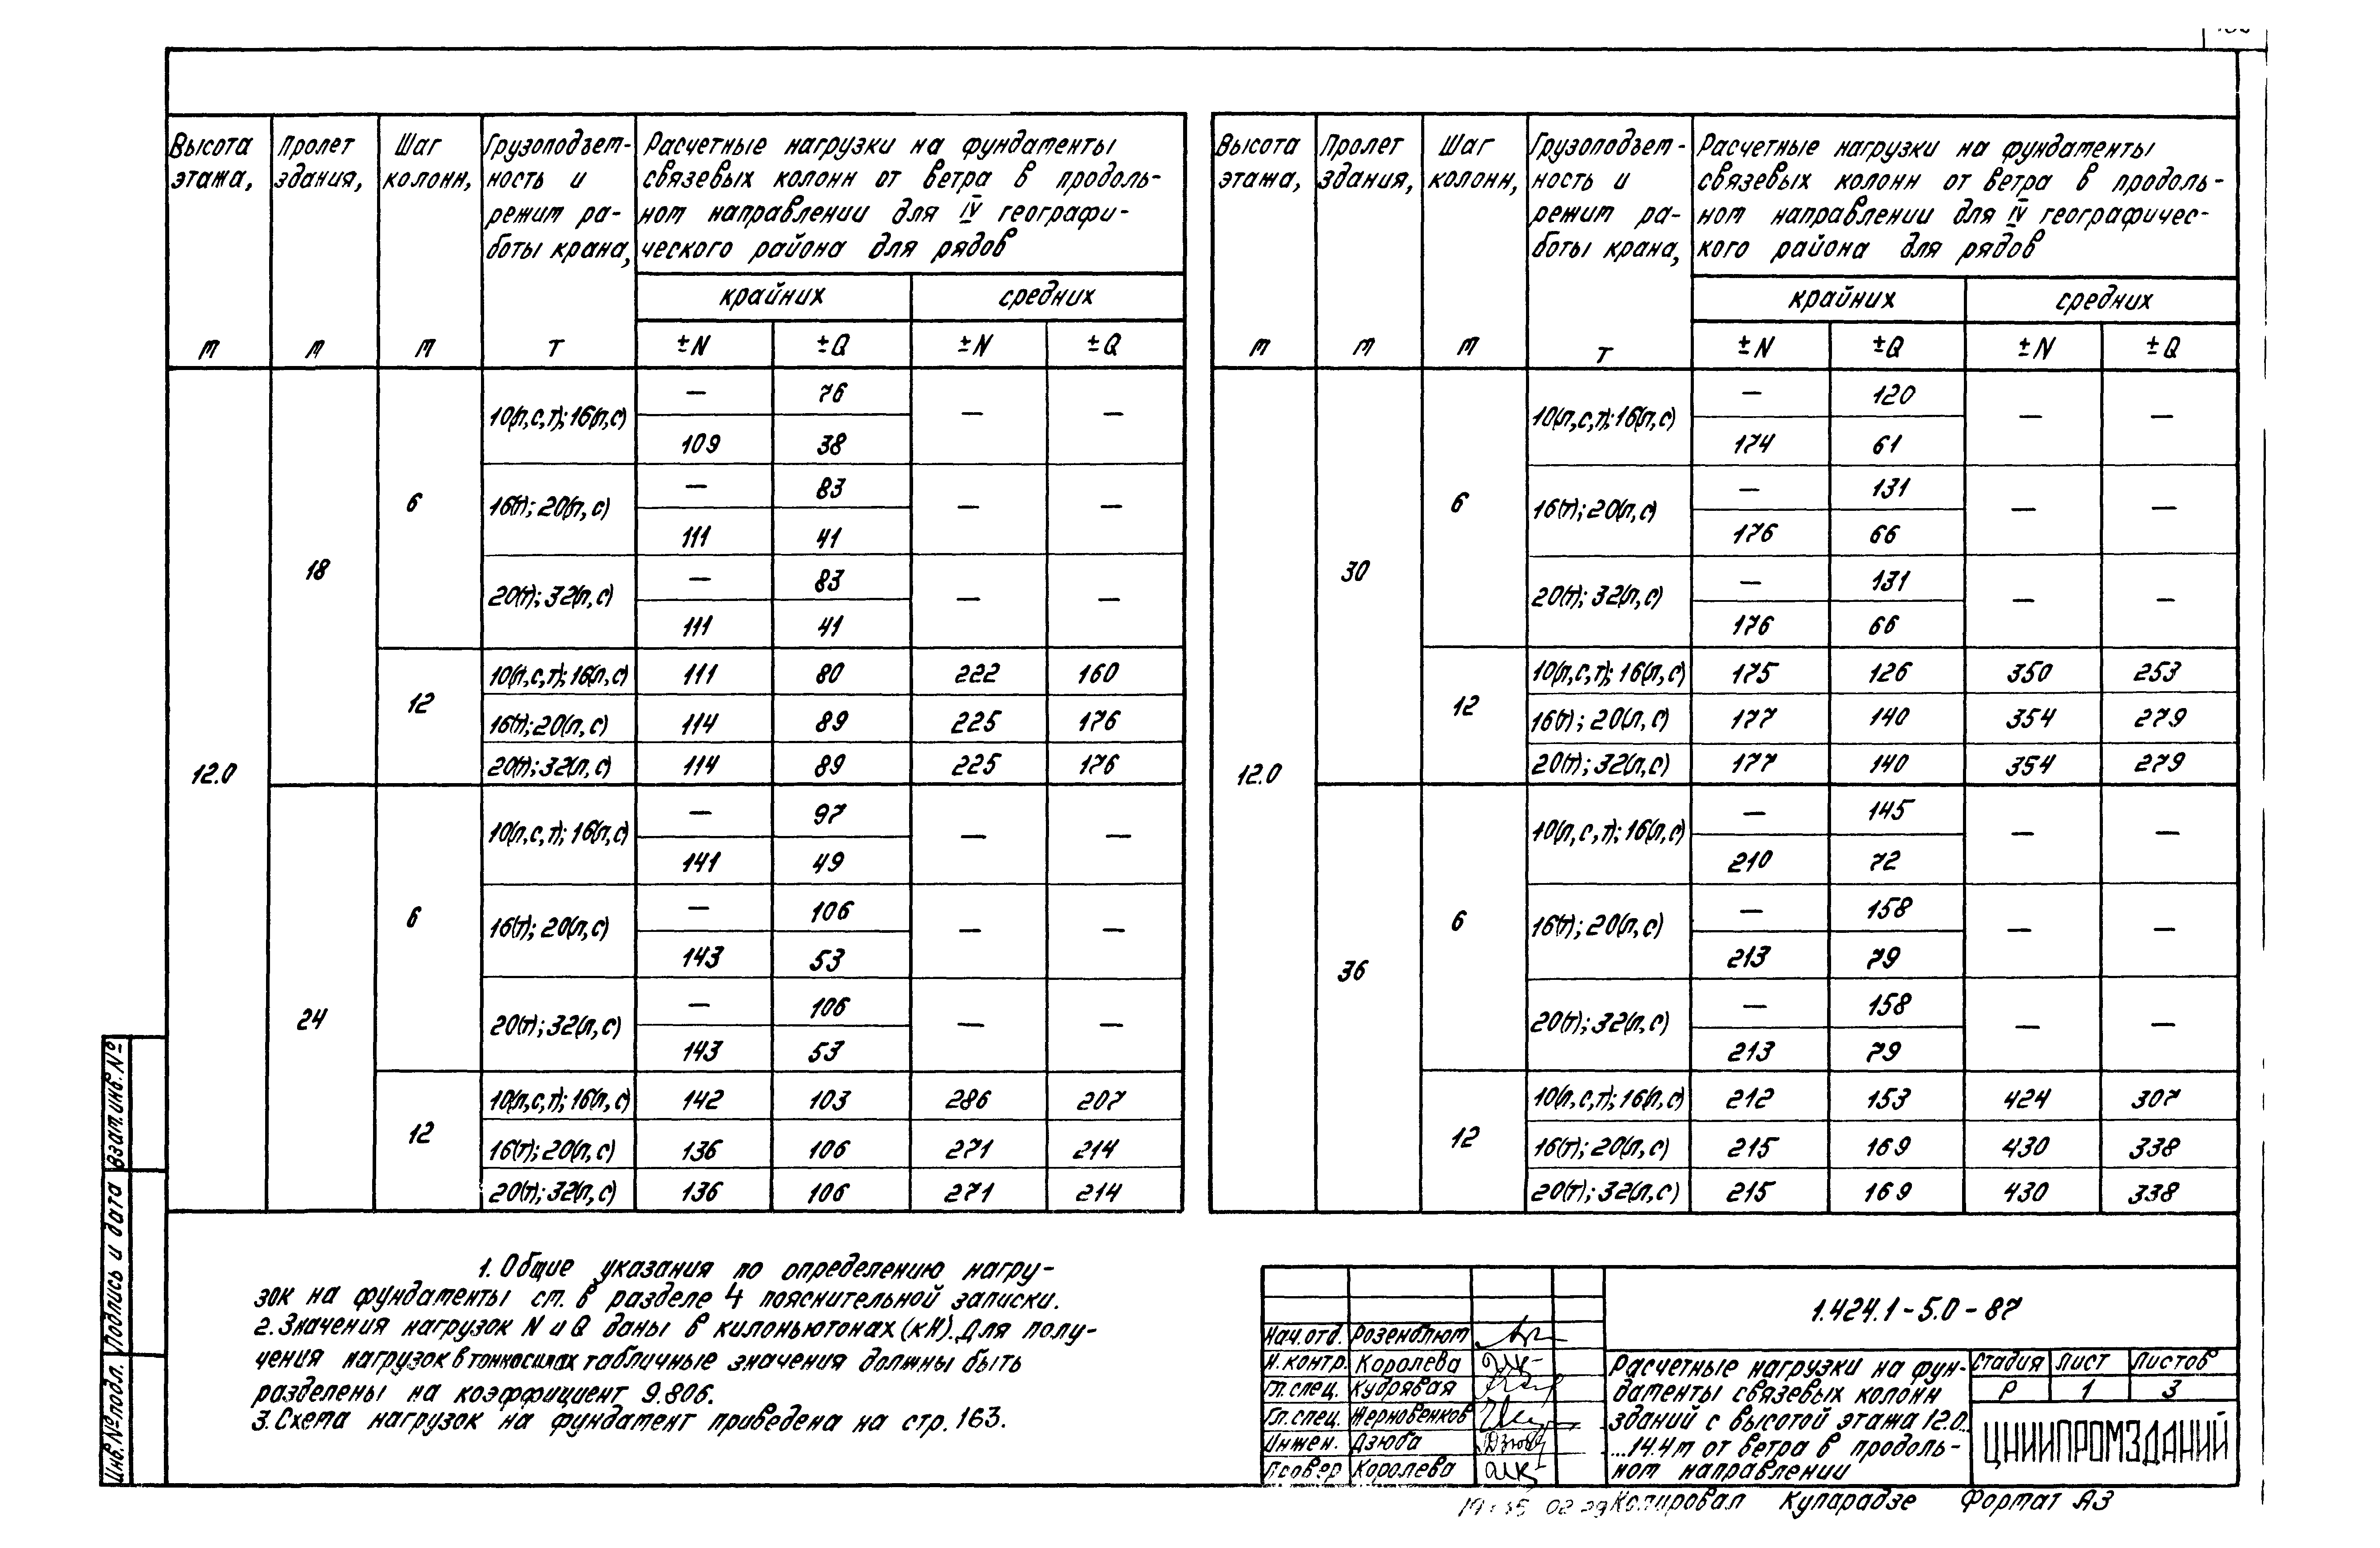 Высота этажа, м | Пролет здания, м | Шаг колонн, м | Грузоподъем-ность и режим ра-боты крана, т | Расчетные нагрузки на фундаменты связевых колонн от ветра в продоль-ном направлении для IV географи-ческого района для рядов
крайних | средних
±N | ±Q | ±N | ±Q
12.0 | 18 | 6 | 10(л,с,т); 16(л,с) | — | 76 | — | —
109 | 38
16(т); 20(л,с) | — | 83 | — | —
111 | 41
20(т); 32(л,с) | — | 83 | — | —
111 | 41
12 | 10(л,с,т); 16(л,с) | 111 | 80 | 222 | 160
16(т); 20(л,с) | 114 | 89 | 225 | 176
20(т); 32(л,с) | 114 | 89 | 225 | 176
24 | 6 | 10(л,с,т); 16(л,с) | — | 97 | — | —
141 | 49
16(т); 20(л,с) | — | 106 | — | —
143 | 53
20(т); 32(л,с) | — | 106 | — | —
143 | 53
12 | 10(л,с,т); 16(л,с) | 142 | 103 | 286 | 207
16(т); 20(л,с) | 136 | 106 | 271 | 214
20(т); 32(л,с) | 136 | 106 | 271 | 214
Высота этажа, м | Пролет здания, м | Шаг колонн, м | Грузоподъем-ность и режим ра-боты крана, т | Расчетные нагрузки на фундаменты связевых колонн от ветра в продоль-ном направлении для IV географичес-кого района для рядов
крайних | средних
±N | ±Q | ±N | ±Q
12.0 | 30 | 6 | 10(л,с,т); 16(л,с) | — | 120 | — | —
174 | 61
16(т); 20(л,с) | — | 131 | — | —
176 | 66
20(т); 32(л,с) | — | 131 | — | —
176 | 66
12 | 10(л,с,т); 16(л,с) | 175 | 126 | 350 | 253
16(т); 20(л,с) | 177 | 140 | 354 | 279
20(т); 32(л,с) | 177 | 140 | 354 | 279
36 | 6 | 10(л,с,т); 16(л,с) | — | 145 | — | —
210 | 72
16(т); 20(л,с) | — | 158 | — | —
213 | 79
20(т); 32(л,с) | — | 158 | — | —
213 | 79
12 | 10(л,с,т); 16(л,с) | 212 | 153 | 424 | 307
16(т); 20(л,с) | 215 | 169 | 430 | 338
20(т); 32(л,с) | 215 | 169 | 430 | 338
1. Общие указания по определению нагру-
зок на фундаменты см. в разделе 4 пояснительной записки.
2. Значения нагрузок N и Q даны в килоньютонах (кН). Для полу-
чения нагрузок в тоннасилах табличные значения должны быть
разделены на коэффициент 9.806.
3. Схема нагрузок на фундамент приведена на стр. 163.
Инв. № подл. | Подпись и дата | Взам. инв. №
Нач. отд. Розенблюм
Н. контр. Королева
Гл. спец. Кудрявая
Гл. спец. Жерновенков
Инжен. Дзюба
Провер Королева
1.424.1-5.0-87
Расчетные нагрузки на фун-
даменты связевых колонн
зданий с высотой этажа 12.0...
...14.4м от ветра в продоль-
ном направлении
Стадия | Лист | Листов
Р | 1 | 3
ЦНИИПРОМЗДАНИЙ
Копировал Купарадзе Формат А3